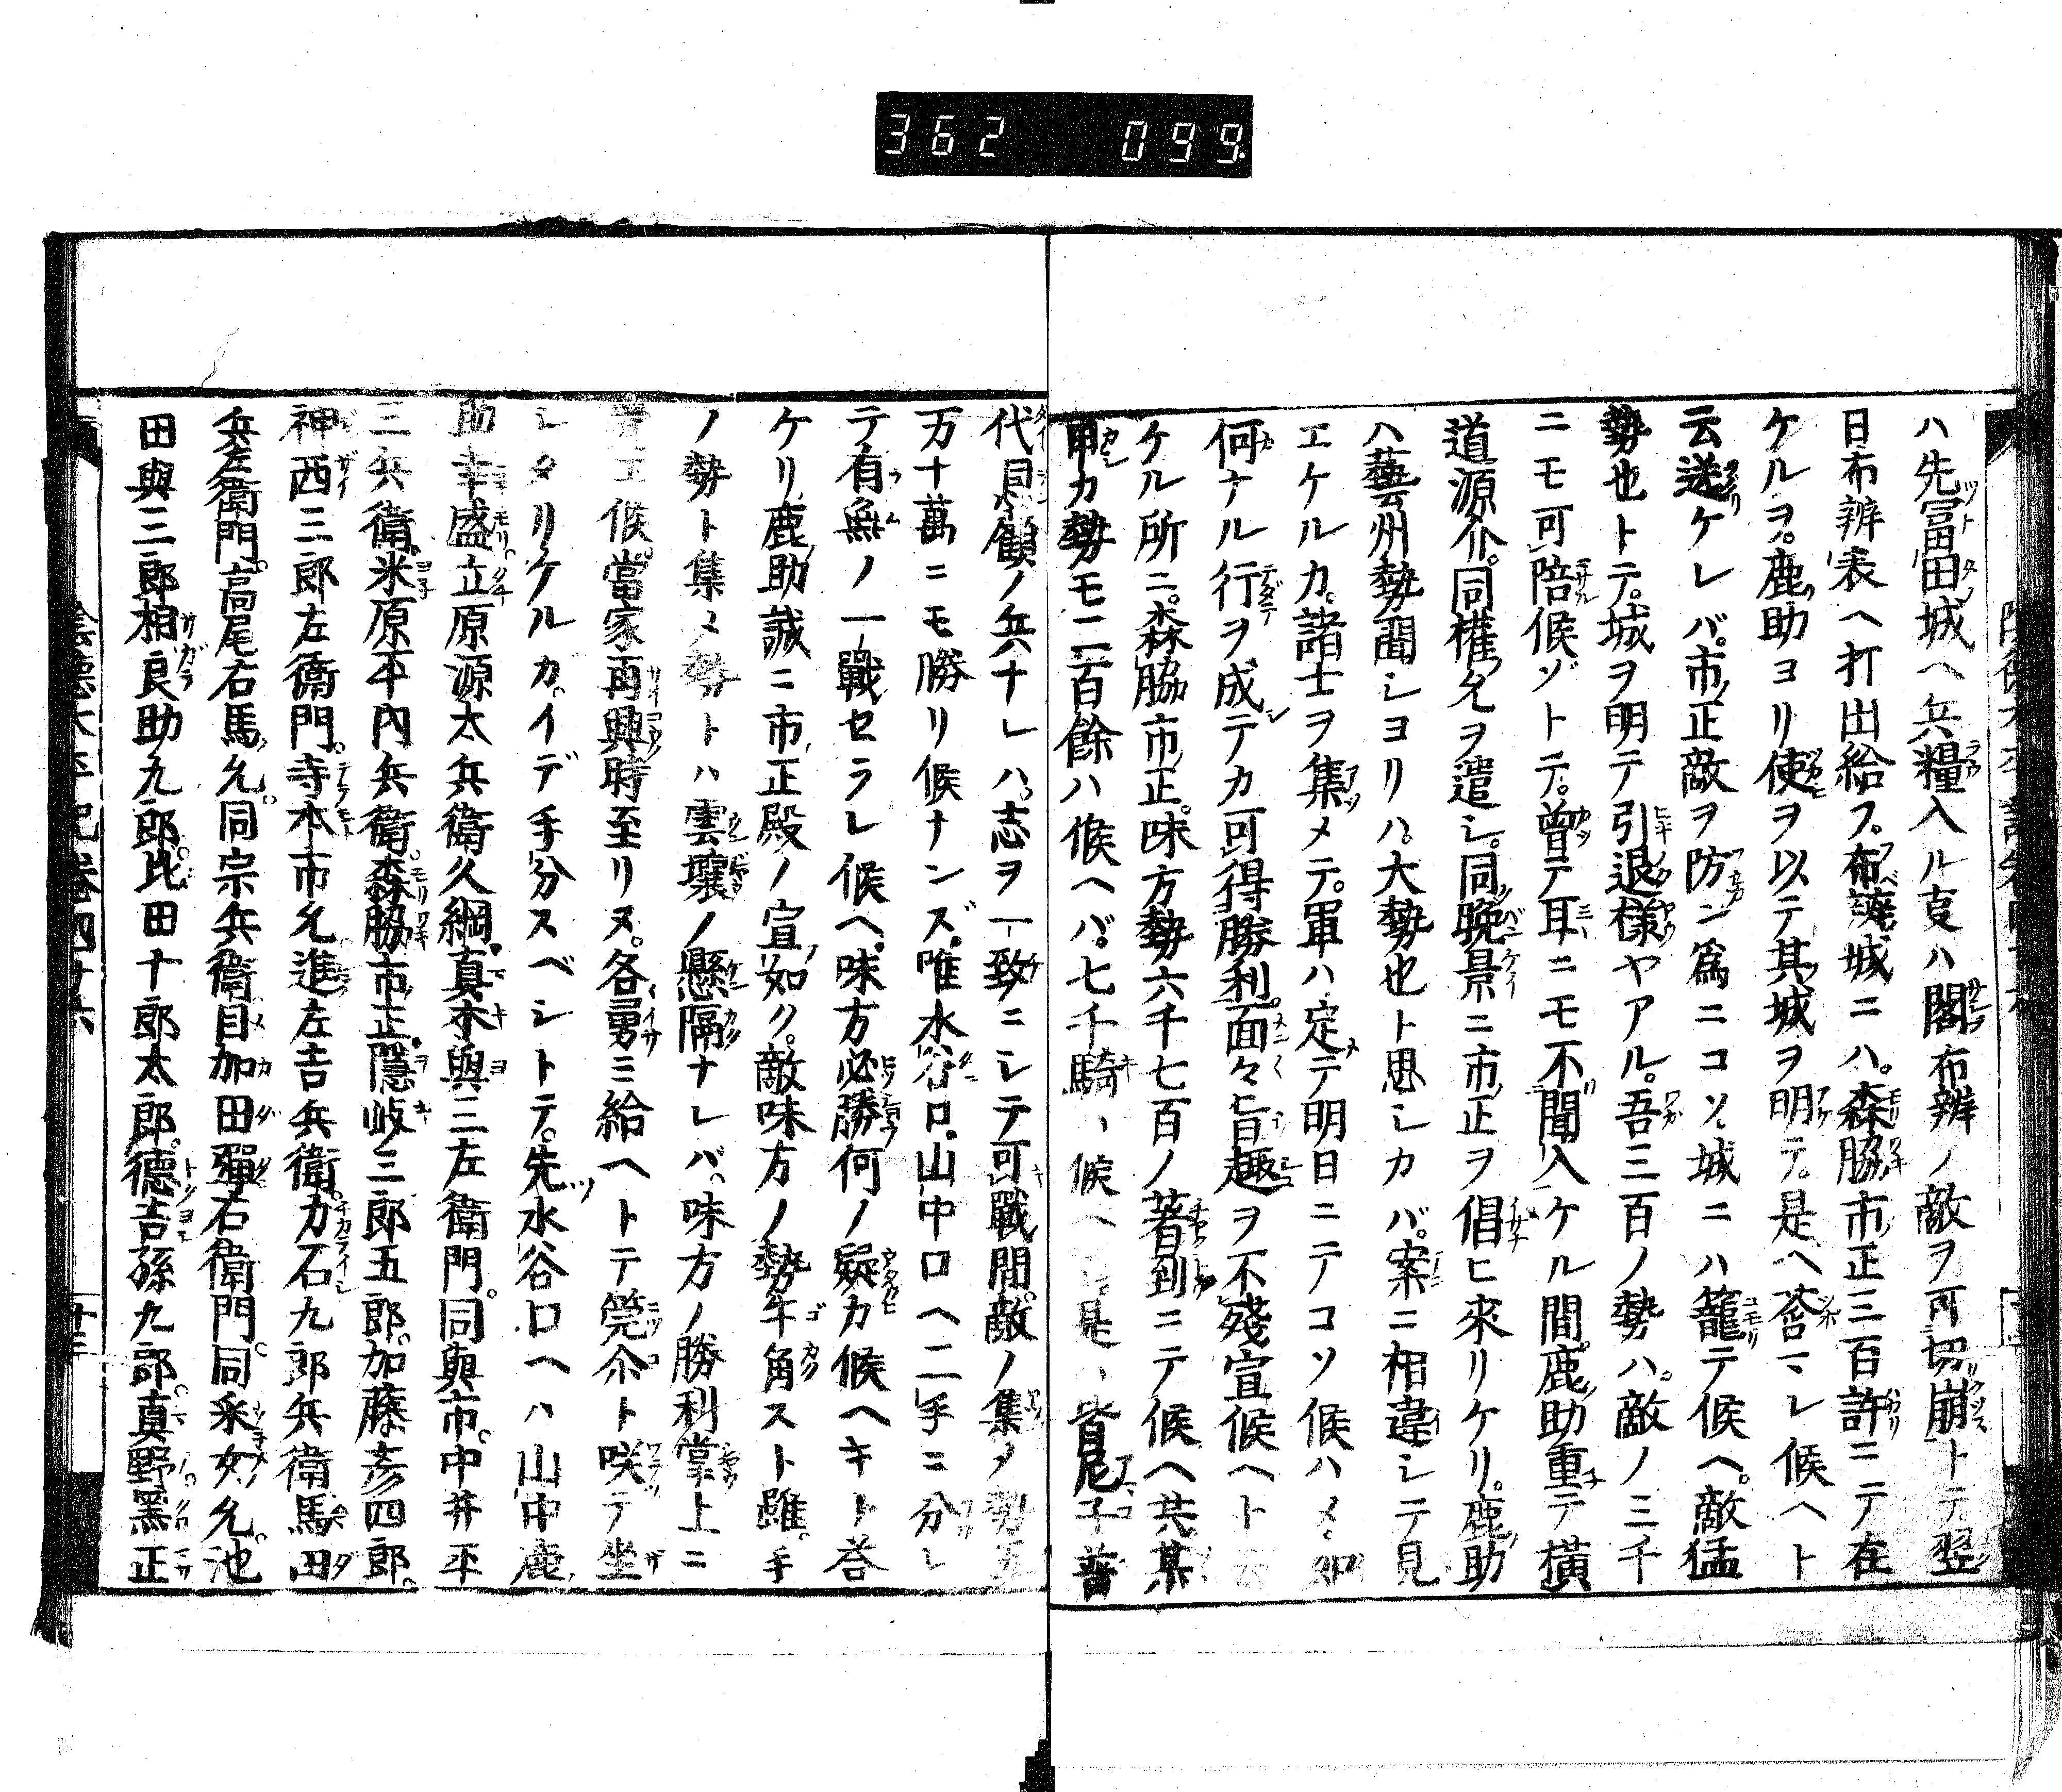 362 099.
ハ先冨田城ヘ兵糧入ル叓ハ閣布辨ノ敵ヲ可切崩トテ翌
日布辨表ヘ打出給フ。布辨城ニハ。森脇市正三百許ニテ在
ケルヲ。鹿助ヨリ使ヲ以テ其城ヲ明テ。是ヘ莟マレ候ヘト
云送ケレバ。市正敵ヲ防ン爲ニコソ城ニハ籠テ候ヘ。敵猛
勢也トテ。城ヲ明テ引退様ヤアル。吾三百ノ勢ハ。敵ノ三千
ニモ可陪候ゾトテ。曽テ耳ニモ不聞入ケル間。鹿助重テ横
道源介。同權允ヲ遣シ。同晩景ニ市正ヲ倡ヒ來リケリ。鹿助
ハ藝州勢聞シヨリハ。大勢也ト思シカバ。案ニ相違シテ見
エケルカ。諸士ヲ集メテ。軍ハ定テ明日ニテコソ候ハメ
何ナル行ヲ成テカ可得勝利。面々旨趣ヲ不殘宣候ヘト
ケル所ニ。森脇市正。味方勢六千七百ノ著到ニテ候ヘ共。某
甲カ勢モ二百餘ハ候ヘバ。七千騎ハ候ヘ是ハ皆尼子普
代恩顧ノ兵ナレハ。志ヲ一致ニシテ可戰間。敵ノ集タ勢五
万十萬ニモ勝リ候ナンズ。唯水谷口。山中口ヘ二手ニ分レ
テ有無ノ一戰セラレ候ヘ。味方必勝何ノ疑カ候ヘキト荅
ケリ鹿助誠ニ市正殿ノ宣如ク。敵味方ノ勢牛角スト雖。手
ノ勢ト集メ勢トハ雲壤ノ懸隔ナレバ。味方ノ勝利掌上ニ
エ候。當家再興時至リヌ。各勇ミ給ヘトテ莞尓ト咲テ坐
シタリケルガ。イデ手分スベシトテ。先水谷口ヘハ山中鹿
助幸盛立原源太兵衛久綱。真木與三左衛門。同與市。中井平
三兵衛。米原平內兵衛。森脇市正。隱岐三郎五郎。加藤彦四郎。
神西三郎左衛門。寺本市允。進左吉兵衛。力石九郎兵衛。馬田
兵左衛門。高尾右馬允。同宗兵衛。目加田彈右衛門。同采女允。池
田與三郎。相良助九郎。比田十郎太郎。德吉孫九郎。真野黑正